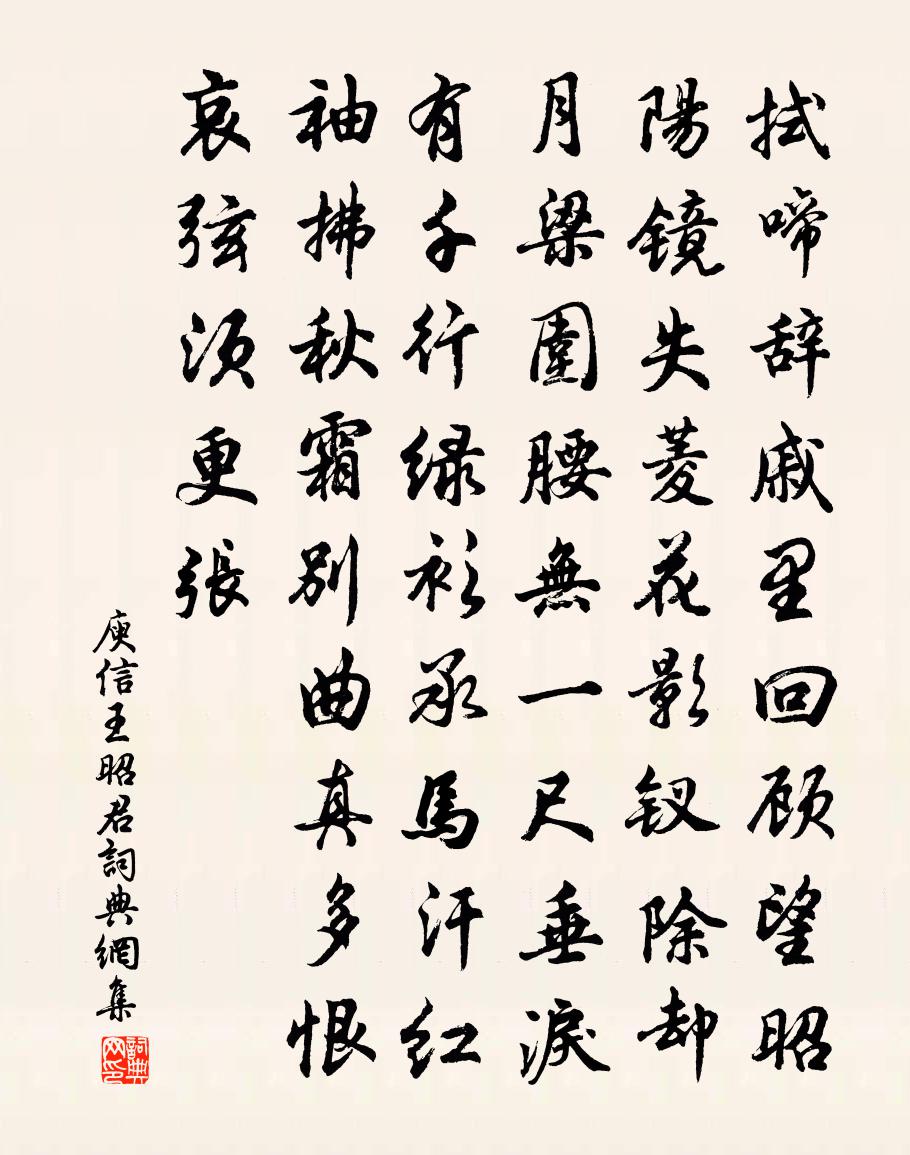 拭啼辞戚里回顾望昭
陽镜失菱花影钗除却
月梁圍腰無一尺垂淚
有千行绿衫承馬汗红
袖拂秋霜别曲真多恨
哀弦须更張
庾信王昭君詞典網集
詞典网印